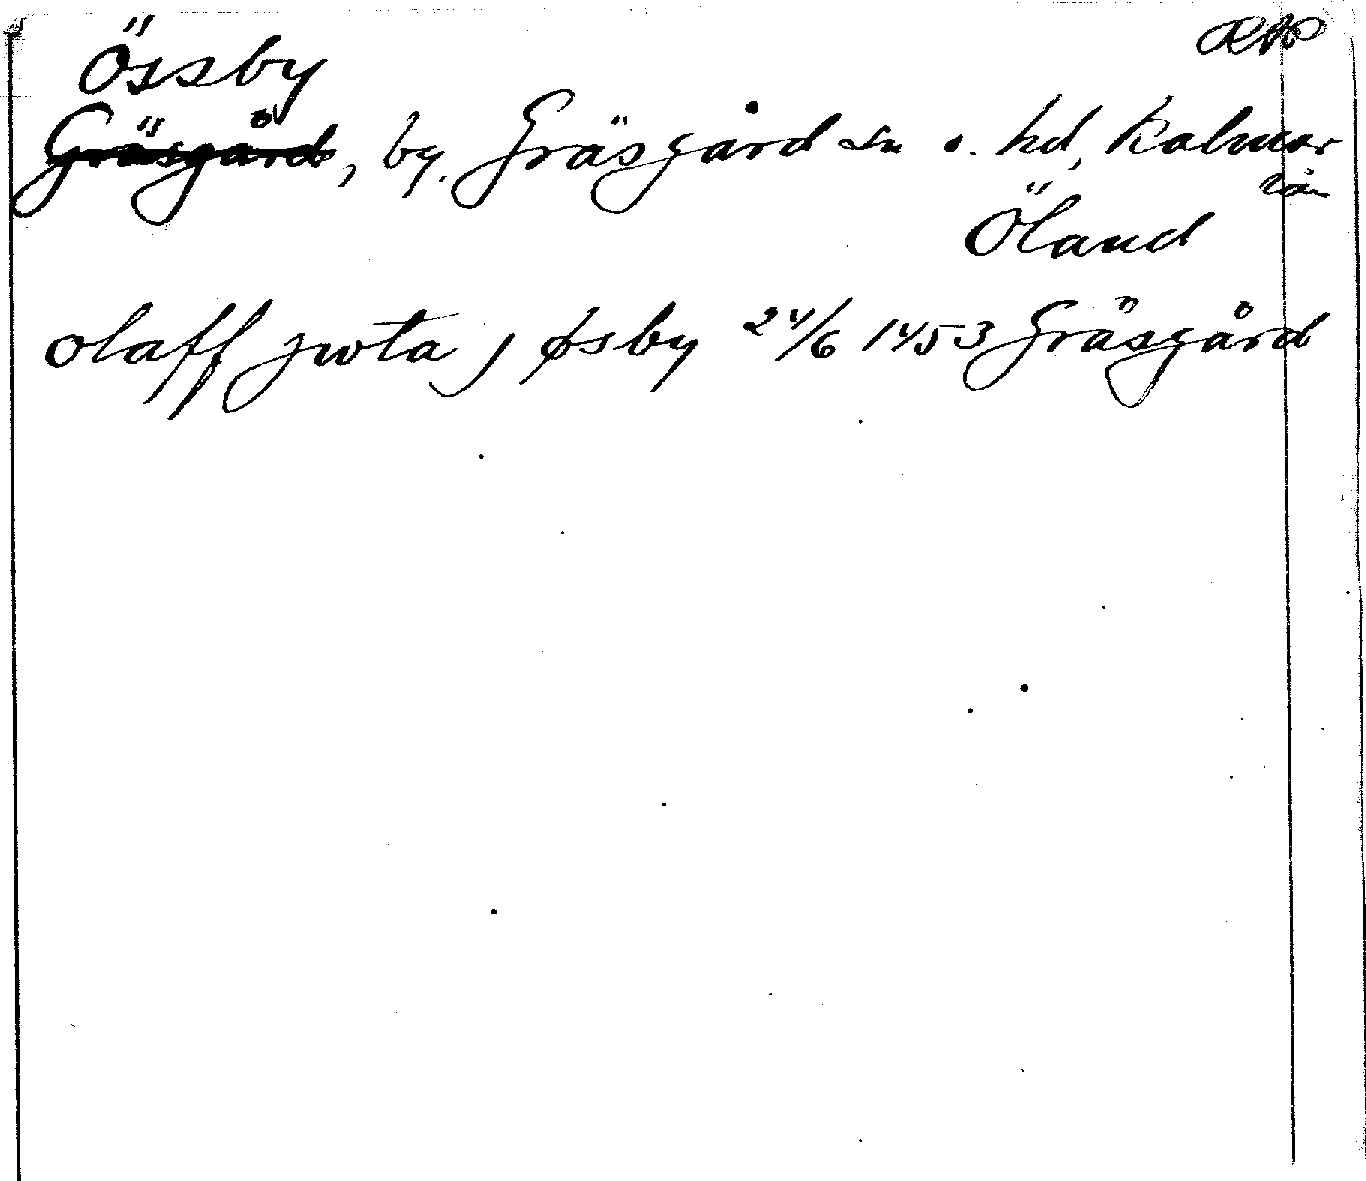 Össby RAP
Gräsgård, by. Gräsgård sn o. hd, Kalmar
län
Öland
olaff jwta j øsby 24/6 1453 Gräsgård